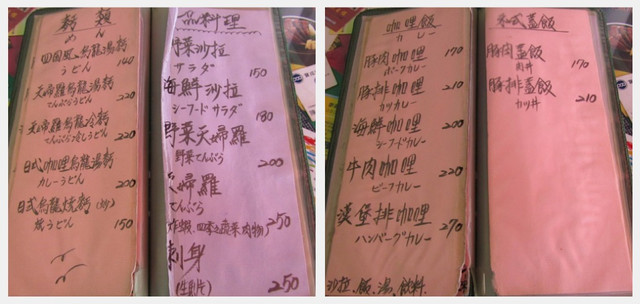 麵類
めん
四國風烏龍湯麵
うどん
140
天婦羅烏龍湯麵
てんぷらうどん
220
天婦羅烏龍冷麵
てんぷら冷しうどん
220
日式咖哩烏龍湯麵
カレーうどん
220
日式烏龍燒麵(炒)
燒うどん
150
一品料理
野菜沙拉
サラダ
150
海鮮沙拉
シーフードサラダ
180
野菜天婦羅
野菜てんぷら
200
天婦羅
てんぷら
炸蝦、四季之蔬菜肉物
250
刺身
(生魚片)
250
咖哩飯
カレー
豚肉咖哩
170
ポークカレー
豚排咖哩
210
カツカレー
海鮮咖哩
200
シーフードカレー
牛肉咖哩
220
ビーフカレー
漢堡排咖哩
270
ハンバーグカレー
沙拉、飯、湯、飲料
日式蓋飯
豚肉蓋飯
170
肉丼
豚排蓋飯
210
カツ丼